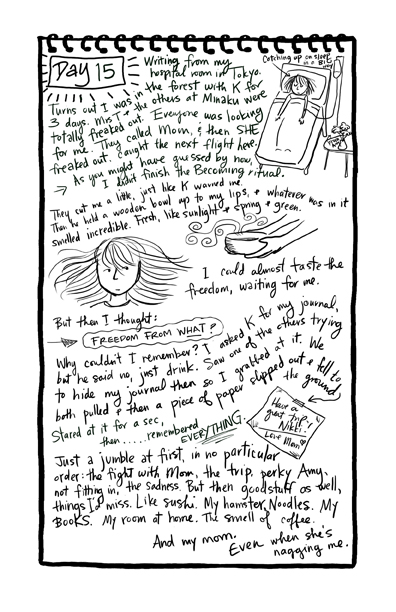 Day 15
Catching up on sleep is a BIG
Writing from my
hospital room in Tokyo.
Turns out I was in the forest with K for
3 days. Mrs T & the others at Minaku were
totally freaked out. Everyone was looking
for me. They called Mom, & then SHE
freaked out. Caught the next flight here.
As you might have guessed by now,
→ I didn't finish the Becoming ritual.
They cut me a little, just like K warned me.
Then he held a wooden bowl up to my lips, & whatever was in it
smelled incredible. Fresh, like sunlight & spring & green.
I could almost taste the
freedom, waiting for me.
But then I thought:
FREEDOM FROM WHAT?
Why couldn't I remember? I asked K for my journal,
but he said no, just drink. Saw one of the others trying
to hide my journal then so I grabbed at it. We
both pulled & then a piece of paper slipped out & fell to
the ground
Stared at it for a sec,
then.....remembered
EVERYTHING.
Have a
great trip,
Niki!
Love Mom
Just a jumble at first, in no particular
order: the fight with Mom, the trip, perky Amy,
not fitting in, the sadness. But then good stuff as well,
things I'd miss. Like sushi. My hamster, Noodles. My
Books. My room at home. The smell of coffee.
And my mom.
Even when she's
nagging me.